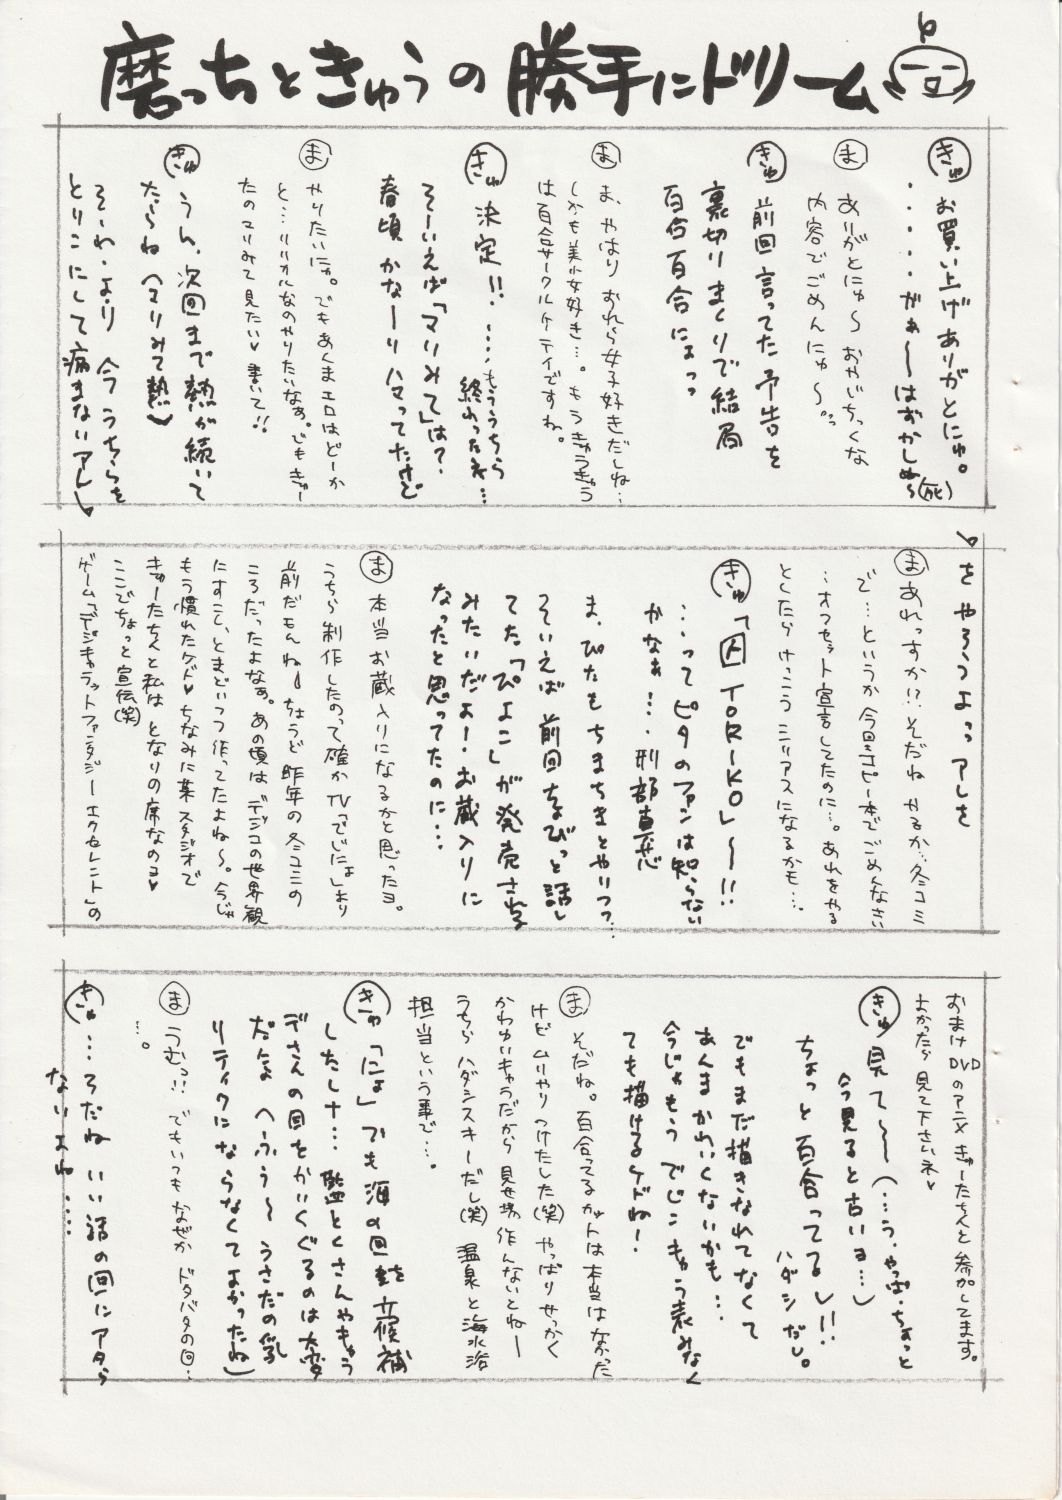 磨っちときゅうの勝手にドリーム
きゅ お買い上げありがとにゅ。
・・・・がぁ〜〜はずかしぬ〜(死)
ま ありがとにゅ〜 おやいちっくな
内容でごめんにゅ〜。
きゅ 前回言ってた予告を
裏切りまくりで結局
百合百合によっっ
ま ま、やはり おれら女子好きだしね…
しかも美少女好き…。もうきゅうきゅう
は百合サークルケテイですね。
きゅ 決定!!…もううちら
終わったネ…
そーいえば「マリみて」は?
春頃かなーりハマってたけど
ま やりたいにゅ。でもあくまエロはどーか
と…リリカルなのやりたいなぁ。でもきゅー
たのマリみて見たい♥書いて!!
きゅ うん、次回まで熱が続いて
たらね(マリみて熱)
そーれ・より 今うちらを
とりこにして病まないアレし♥
をやろうよっっ アレを
ま あれっすか!? そだね やるか…冬コミ
で…というか今回コピー本でごめんなさい
…オフセット宣言してたのに…。あれをやる
としたら けっこうシリアスになるかも…。
きゅ 「囚 TORIKO」〜〜!!
…ってピタのファンは知らない
かなぁ…・刑部真芯
ま、ぴたもちまちまとやりつつ…
そいえば前回ちょびっと話し
てた「ぴよこ」が発売される
みたいだよー・お蔵入りに
なったと思ってたのに…
ま 本当お蔵入りになるかと思ったヨ。
うちら制作したのって確かTV「でじにょ」より
前だもんね→ちょうど昨年の冬コミの
ころだったよなぁ。あの頃はデジコの世界観
にすこし、とまどいつつ作ってたよね〜。今じゃ
もう慣れたケド♥ちなみに某スタジオで
きゅーたちんと私は となりの席なのヨ♥
ここでちょっと宣伝(笑)
ゲーム「デジキャラットファンタジーエクセレント」の
おまけDVDのアニメきゅーたちんと参加してます。
よかったら見て下さいネ♥
きゅ 見て〜〜(…う・やっぱ・ちょっと
今見ると古いヨ…)
ちょっと百合ってるし!!
ハダシだし。
でもまだ描きなれてなくて
あんまかわいくないかも…
今じゃもうでじこキャラ表みなく
ても描けるケドねー!
ま そだね。百合ってるカットは本当はなかった
けどムリやりつけたした(笑)やっぱりせっかく
かわゆいキャラだから見せ場作んないとねー
うちらハダシスキーだし(笑)温泉と海水浴
担当という事で…。
きゅ 「にょ」でも海の回を立候補
したし†…監とくさんやキャラ
デさんの目をかいくぐるのは大変
だぁよ(ふぅ〜うさだの乳
リーティクにならなくてよかったね)
ま うむっ!! でもいつもなぜかドタバタの回…
…。
きゅ …そだね いい話の回にアタら
ないよね…・